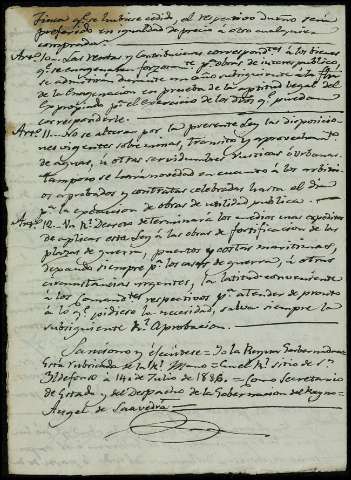 finca qe. se hubiese cedido, el respectivo dueño será
preferido en igualdad de precio a otro cualquiera
comprador.
Artº. 10.. Las rentas y contribuciones correspondtes. a los bienes
qe. se enagenen forzosamte. pr. obras de interes publico,
se admitirán durante un año subsiguiente a la fha.
de la enagenacion en prueba de la aptitud legal del
Expropiado pa. el ejercicio de los dros. qe. puedan
corresponderle.
Artº. 11.. No se alteran por la presente Ley las disposicio-
nes vigentes sobre minas, transito y aprovechamto.
de aguas, ú otras servidumbres rusticas ó urbanas.
tampoco se hará novedad en cuanto á los arbitrios
aprobados y contratas celebradas hasta el dia
pa. la egecucion de obras de utilidad publica.
Artº. 12.. Un Rl. decreto determinará los medios mas expeditos
de aplicar esta Ley á las obras de fortificacion de las
plazas de guerra, puertos y costas maritimas,
dejando siempre pa. los casos de guerra, ú otras
circunstancias urgentes, la latitud conveniente
á los Comandtes. respectivos pa. atender de pronto
á lo qe. pidiese la necesidad, salva siempre la
subsiguiente Rl. aprobacion.
Sanciono y ejecútese = Yo la Reyna Gobernadora
Está rubricado de la Rl. Mano = En el Rl. sitio de Sn.
Ildefonso à 14 de Julio de 1836. = Como Secretario
de Estado y del Despacho de la Gobernacion del Reyno =
Angel de Saavedra